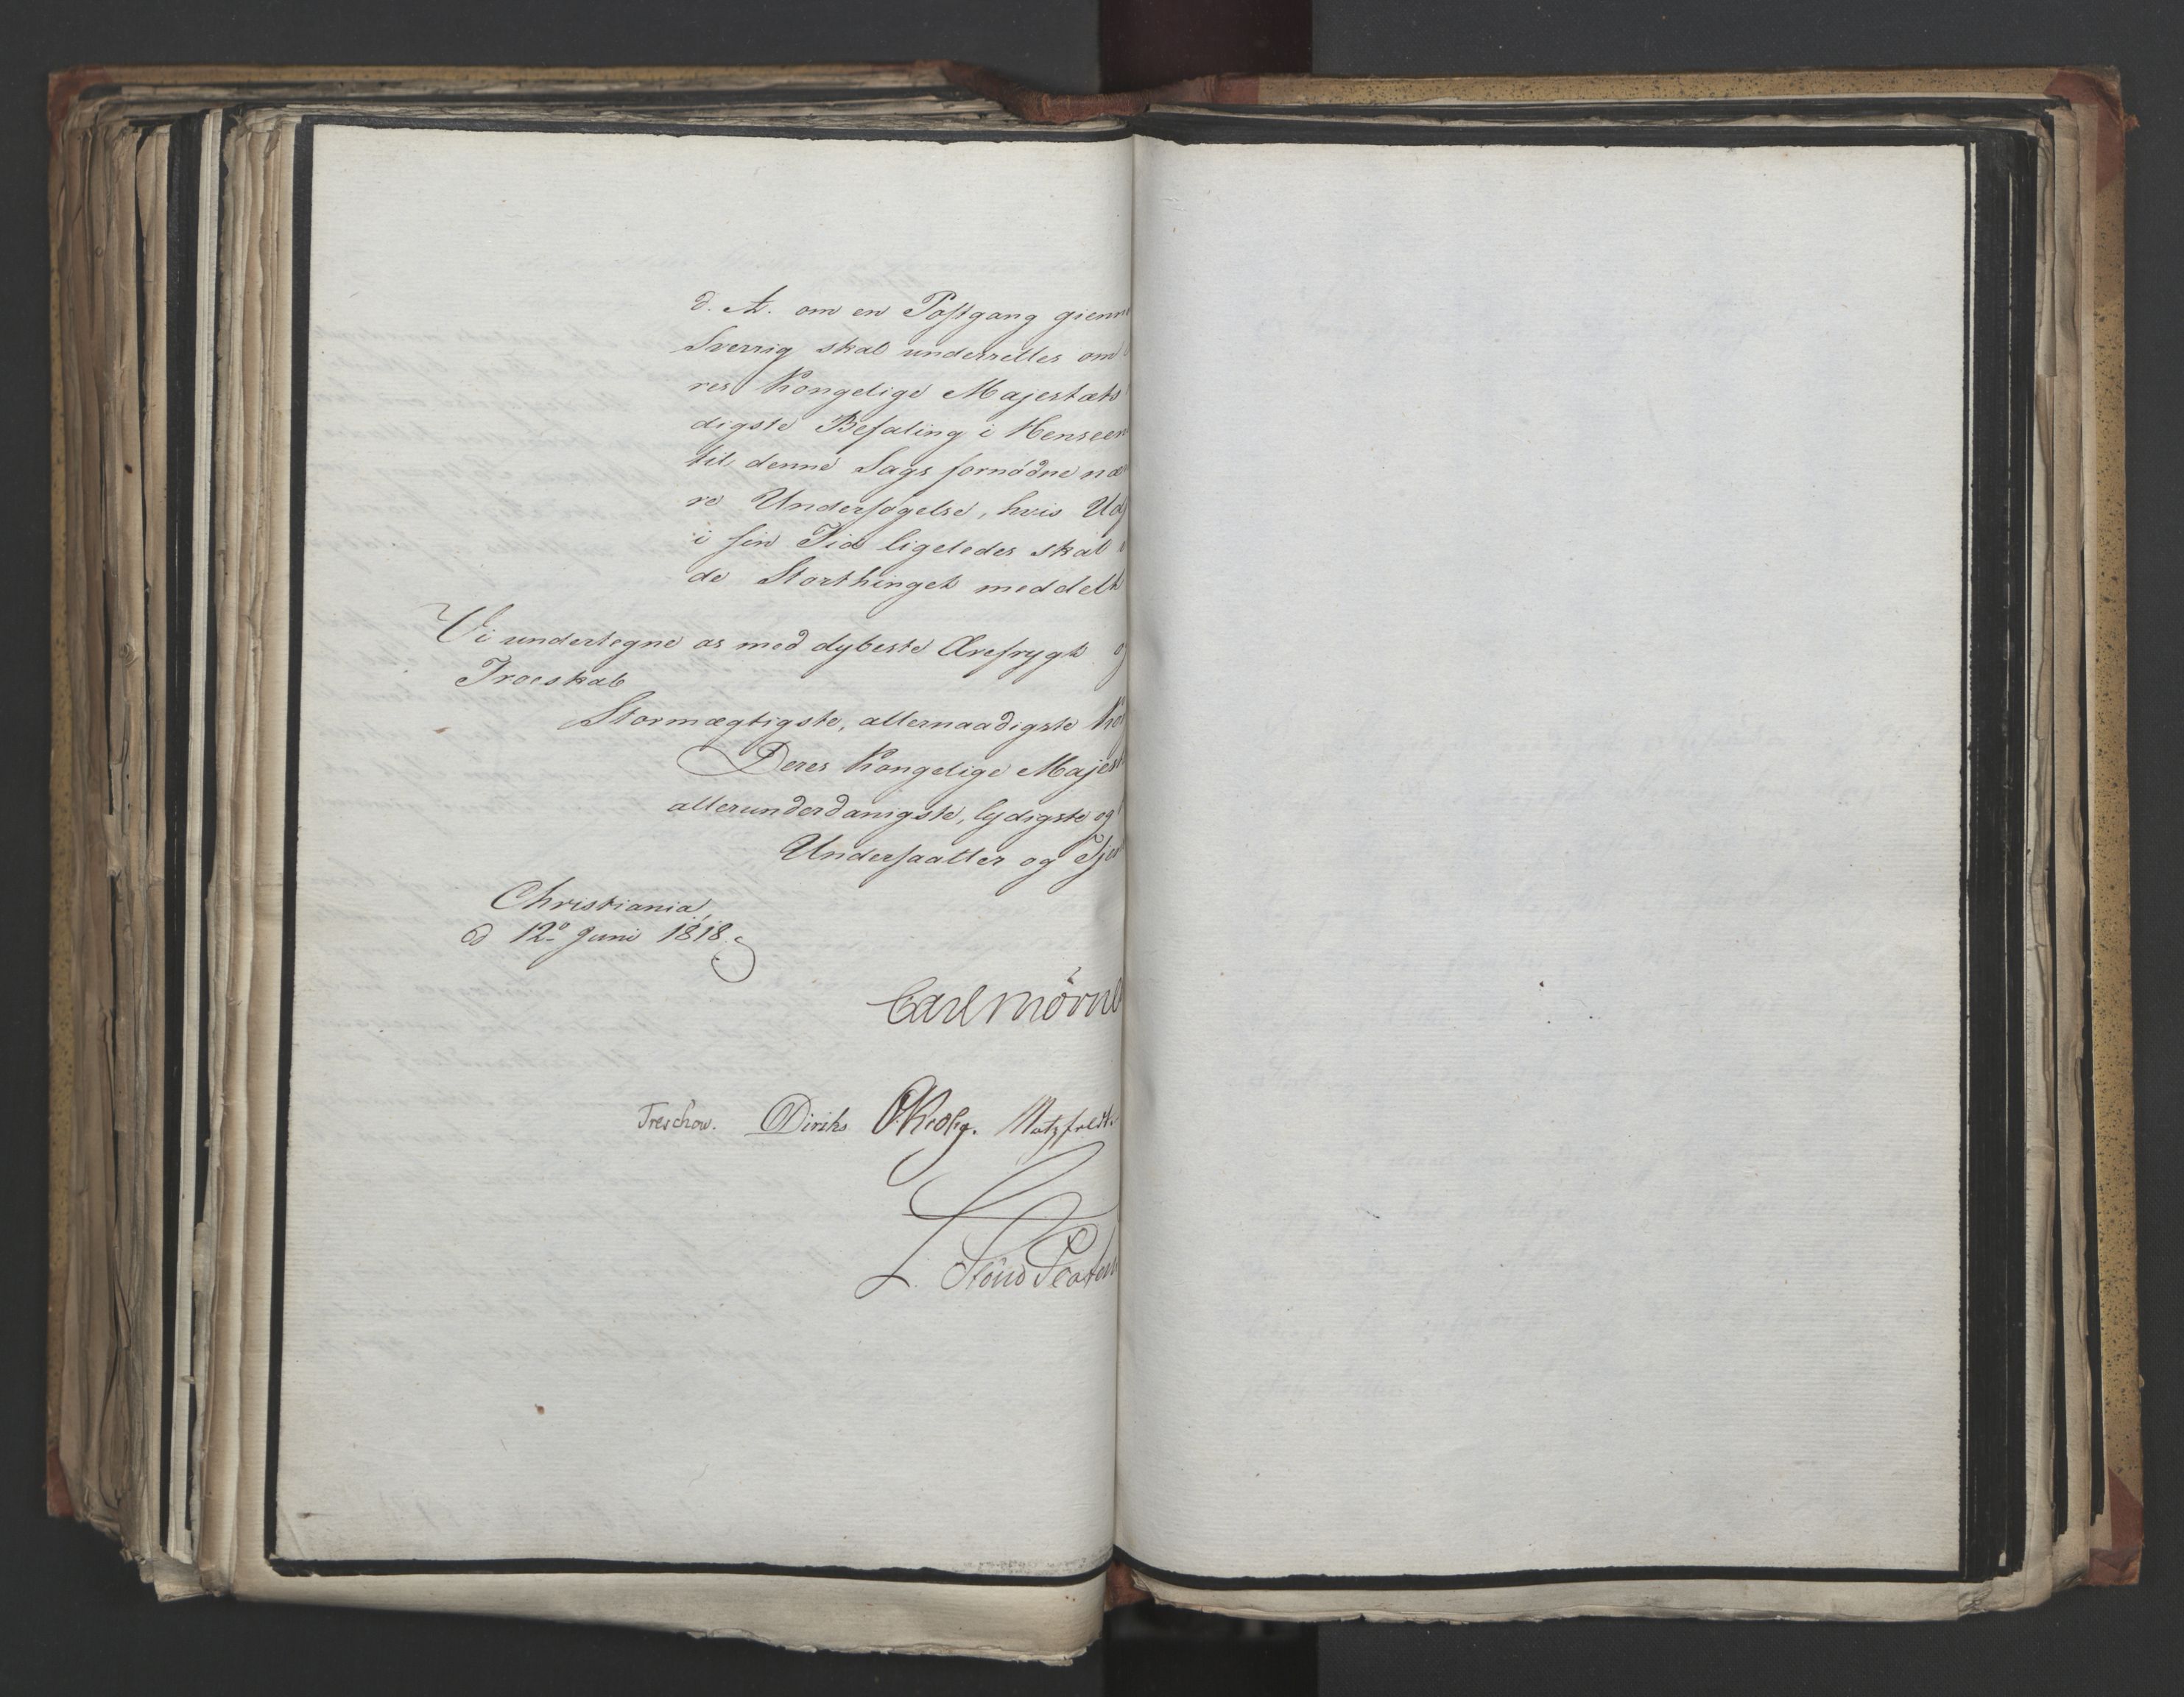 d. A. om en Postgang gienn
Sverrig skal underrettes om
res Kongelige Majestæts
digste Befaling i Henseen
til denne Sags fornødne næ
re Undersøgelse, hvis Ud
i sin Tid ligeledes skal
de Storthinget meddelt
Vi undertegne os med dybeste Ærefrygt og
Troeskab
Stormægtigste, allernaadigste Ko
Deres Kongelige Majest
allerunderdanigste, lydigste og
Undersaatter og Tjen
Christiania,
d 12te Juni 1818.
Carl Mörner
Treschow. Diriks Motzfeldt.
L. Stoud Platou